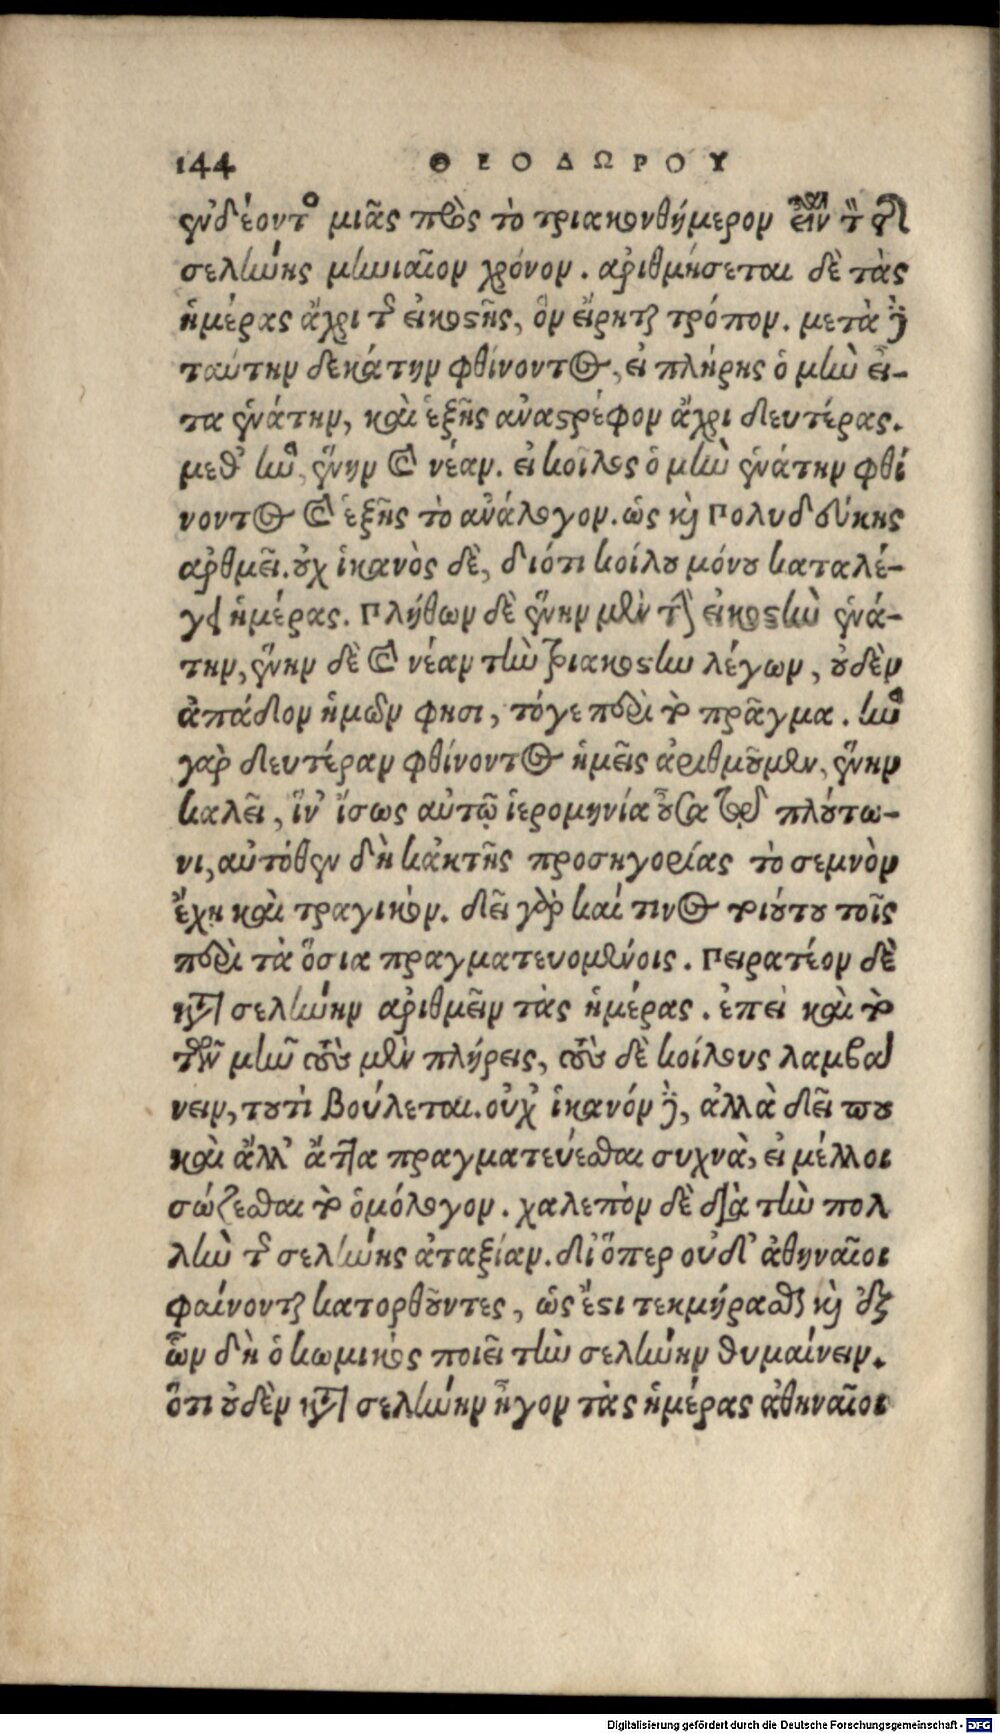 144 ΘΕΟΔΩΡΟΥ
ἐνδέοντος μιᾶς πρὸς τὸ τριακονθήμερον εἶναι τὸν τῆς
σελήνης μηνιαῖον χρόνον. ἀριθμήσεται δὲ τὰς
ἡμέρας ἄχρι τῆς εἰκοστῆς, ὃν εἴρηται τρόπον. μετὰ δὲ
ταύτην δεκάτην φθίνοντος, εἰ πλήρης ὁ μὴν εἶ-
τα ἐνάτην, καὶ ἑξῆς ἀναστρέφον ἄχρι δευτέρας.
μεθ' ἣν, ἕνην καὶ νέαν. εἰ κοῖλος ὁ μὴν ἐνάτην φθί
νοντος καὶ ἑξῆς τὸ ἀνάλογον. ὡς καὶ Πολυδεύκης
ἀριθμεῖ. οὐχ ἱκανὸς δὲ, διότι κοίλου μόνου καταλέ-
γει ἡμέρας. Πλήθων δὲ ἕνην μὲν τὴν εἰκοστὴν ἐνά-
την, ἕνην δὲ καὶ νέαν τὴν τριακοστὴν λέγων, οὐδὲν
ἀπᾴδον ἡμῶν φησι, τόγε περὶ τὸ πρᾶγμα. ἣν
γὰρ δευτέραν φθίνοντος ἡμεῖς ἀριθμοῦμεν, ἕνην
καλεῖ, ἵν' ἴσως αὐτῷ ἱερομηνία οὖσα τῷ πλούτω-
νι, αὐτόθεν δὴ κἀκ τῆς προσηγορίας τὸ σεμνὸν
ἔχῃ καὶ τραγικόν. δεῖ γὰρ καί τινος τοιούτου τοῖς
περὶ τὰ ὅσια πραγματευομένοις. Πειρατέον δὲ
κατὰ σελήνην ἀριθμεῖν τὰς ἡμέρας. ἐπεὶ καὶ τὸ
τῶν μηνῶν τοὺς μὲν πλήρεις, τοὺς δὲ κοίλους λαμβά
νειν, τουτὶ βούλεται. οὐχ ἱκανόν δὲ, ἀλλὰ δεῖ που
καὶ ἄλλ' ἄττα πραγματεύεσθαι συχνὰ, εἰ μέλλοι
σώζεσθαι τὸ ὁμόλογον. χαλεπὸν δὲ διὰ τὴν πολ
λὴν τῆς σελήνης ἀταξίαν. δι' ὅπερ οὐδ' ἀθηναῖοι
φαίνονται κατορθοῦντες, ὡς ἔστι τεκμήρασθαι καὶ ἐξ
ὧν δὴ ὁ κωμικὸς ποιεῖ τὴν σελήνην θυμαίνειν.
ὅτι οὐδὲν κατὰ σελήνην ἦγον τὰς ἡμέρας ἀθηναῖοι
Digitalisierung gefördert durch die Deutsche Forschungsgemeinschaft - DFG